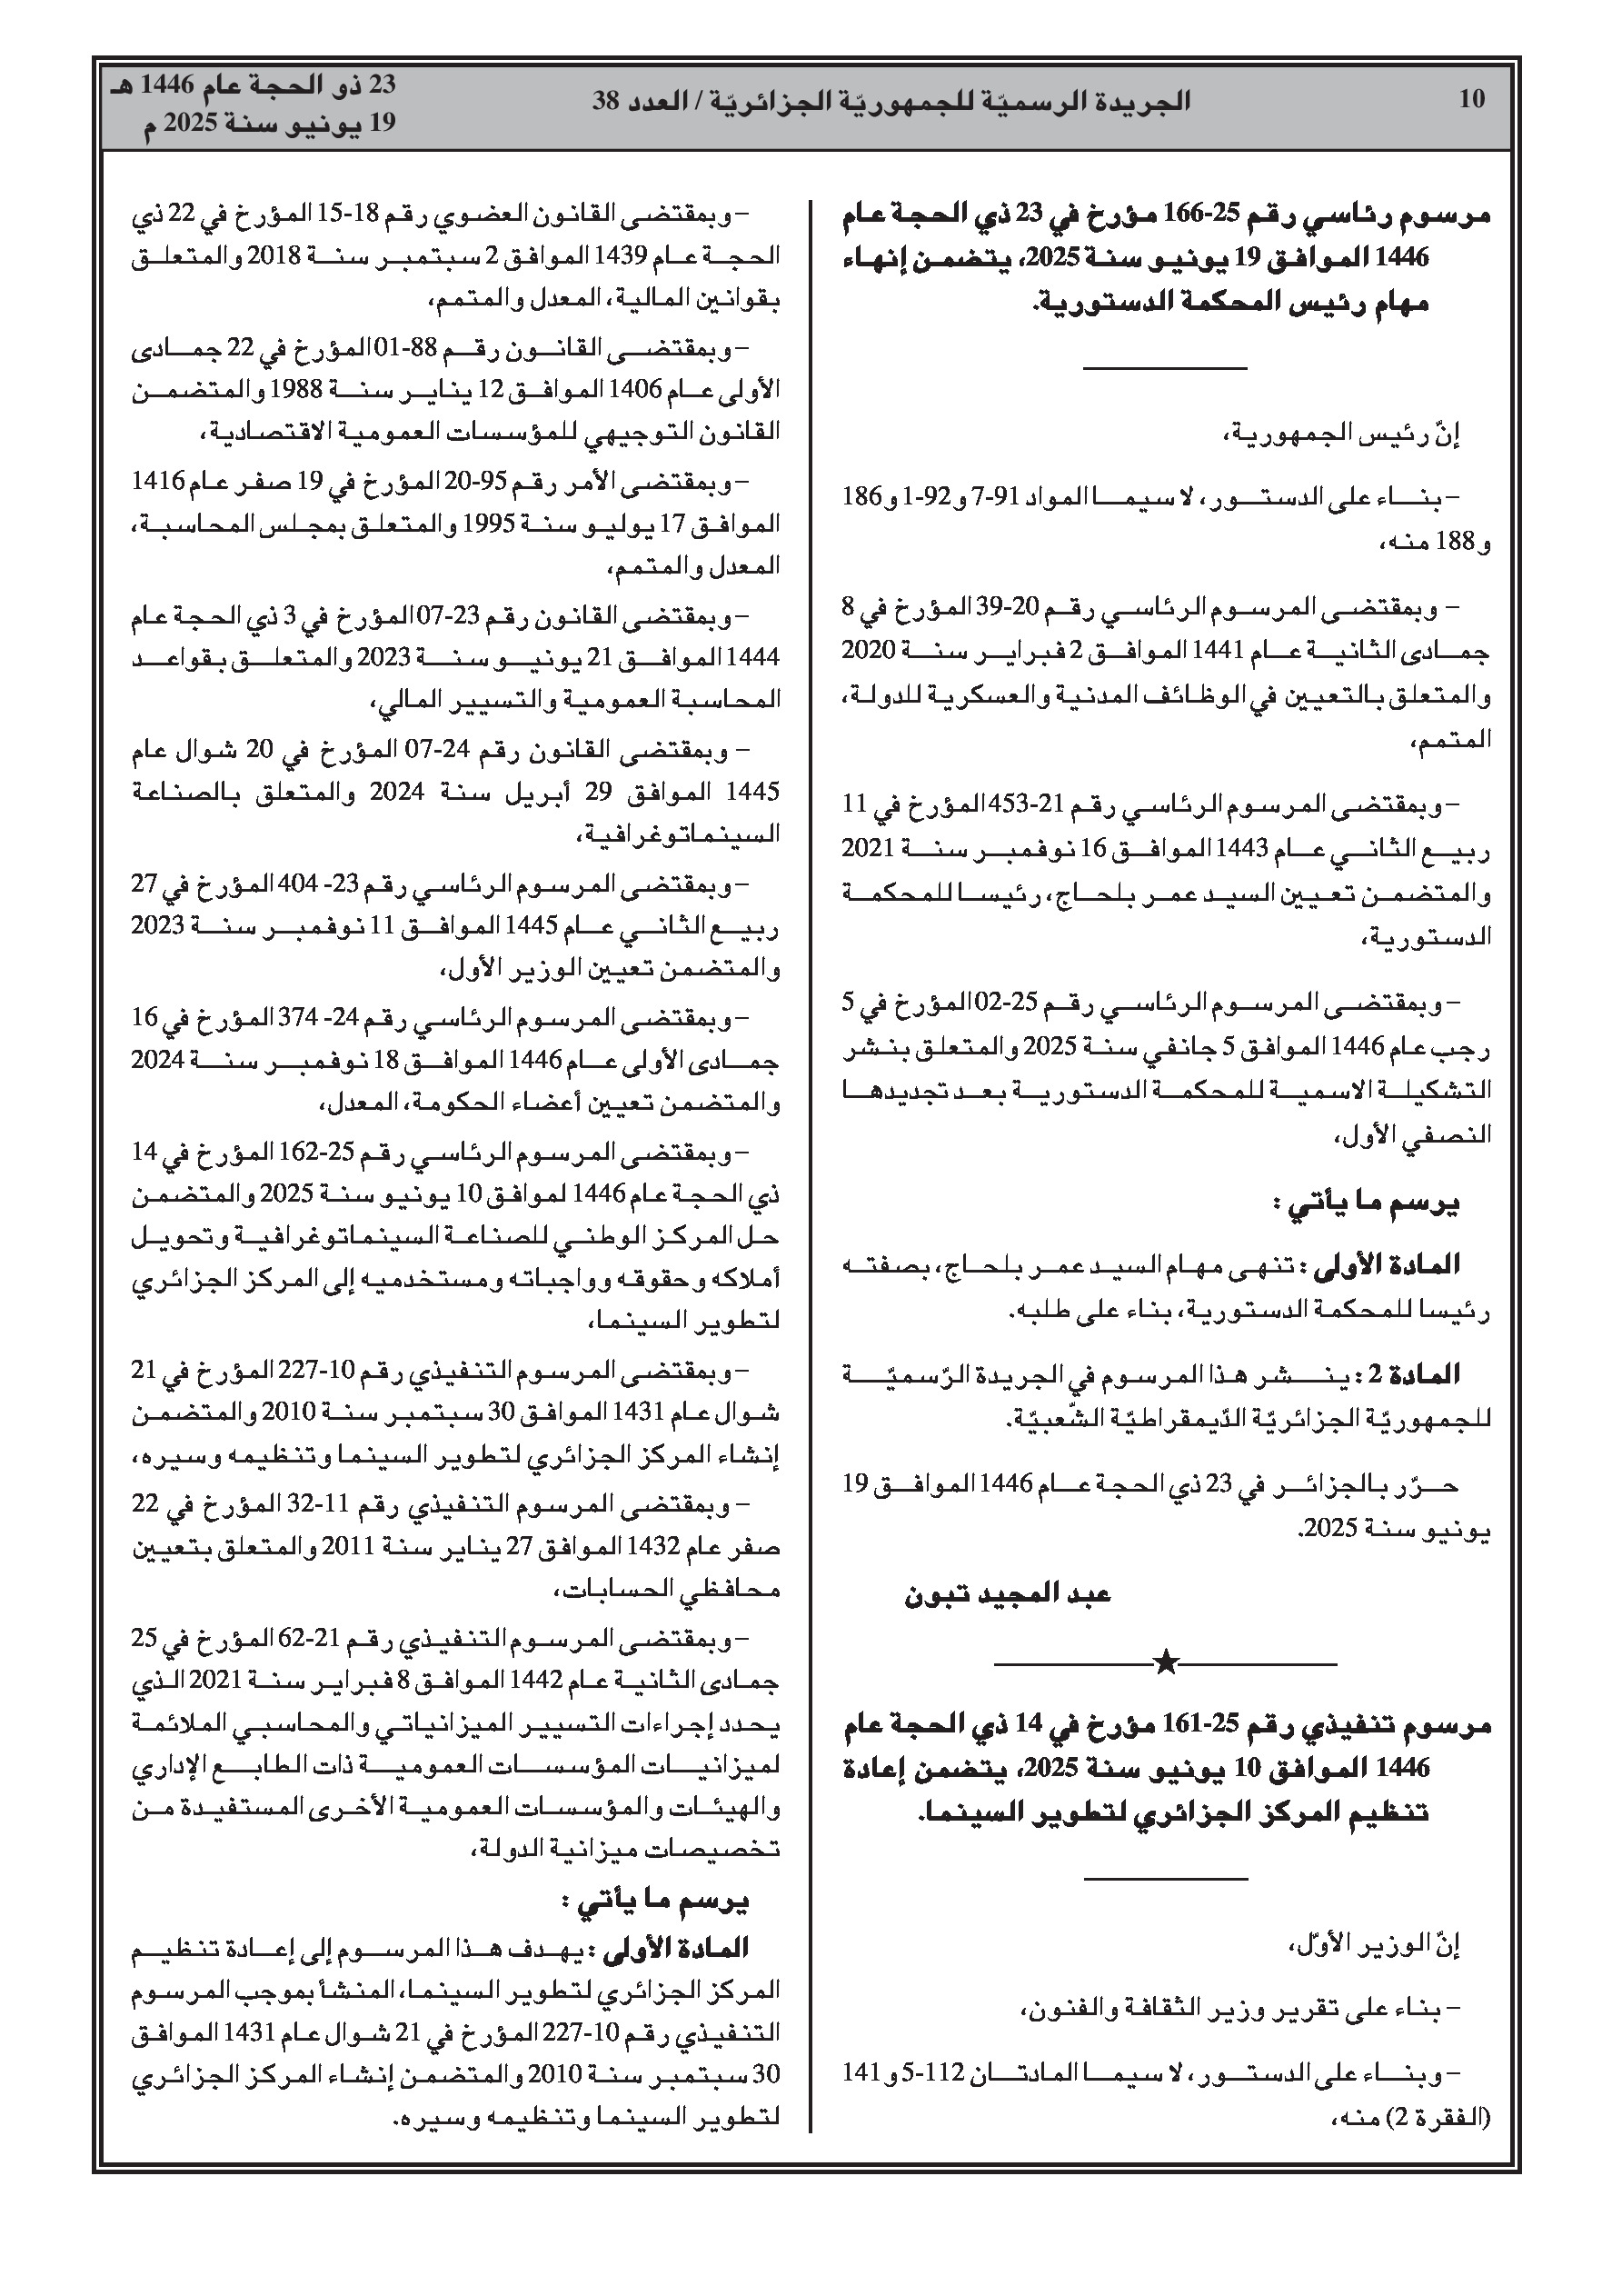 10
الجريدة الرسميّة للجمهوريّة الجزائريّة / العدد 38
23 ذو الحجة عام 1446 هـ
19 يونيو سنة 2025 م
مرسوم رئاسي رقم 25-166 مؤرخ في 23 ذي الحجة عام
1446 الموافق 19 يونيو سنة 2025، يتضمن إنهاء
مهام رئيس المحكمة الدستورية.
إنّ رئيس الجمهورية،
– بناء على الدستور، لا سيما المواد 91-7 و92-1 و186
و188 منه،
– وبمقتضى المرسوم الرئاسي رقم 20-39 المؤرخ في 8
جمادى الثانية عام 1441 الموافق 2 فبراير سنة 2020
والمتعلق بالتعيين في الوظائف المدنية والعسكرية للدولة،
المتمم،
– وبمقتضى المرسوم الرئاسي رقم 21-453 المؤرخ في 11
ربيع الثاني عام 1443 الموافق 16 نوفمبر سنة 2021
والمتضمن تعيين السيد عمر بلحاج، رئيسا للمحكمة
الدستورية،
– وبمقتضى المرسوم الرئاسي رقم 25-02 المؤرخ في 5
رجب عام 1446 الموافق 5 جانفي سنة 2025 والمتعلق بنشر
التشكيلة الاسمية للمحكمة الدستورية بعد تجديدها
النصفي الأول،
يرسم ما يأتي :
المادة الأولى : تنهى مهام السيد عمر بلحاج، بصفته
رئيسا للمحكمة الدستورية، بناء على طلبه.
المادة 2 : ينشر هذا المرسوم في الجريدة الرّسميّة
للجمهوريّة الجزائريّة الدّيمقراطيّة الشّعبيّة.
حرّر بالجزائر في 23 ذي الحجة عام 1446 الموافق 19
يونيو سنة 2025.
عبد المجيد تبون
مرسوم تنفيذي رقم 25-161 مؤرخ في 14 ذي الحجة عام
1446 الموافق 10 يونيو سنة 2025، يتضمن إعادة
تنظيم المركز الجزائري لتطوير السينما.
إنّ الوزير الأوّل،
– بناء على تقرير وزير الثقافة والفنون،
– وبناء على الدستور، لا سيما المادتان 112-5 و141
(الفقرة 2) منه،
– وبمقتضى القانون العضوي رقم 18-15 المؤرخ في 22 ذي
الحجة عام 1439 الموافق 2 سبتمبر سنة 2018 والمتعلق
بقوانين المالية، المعدل والمتمم،
– وبمقتضى القانون رقم 88-01 المؤرخ في 22 جمادى
الأولى عام 1406 الموافق 12 يناير سنة 1988 والمتضمن
القانون التوجيهي للمؤسسات العمومية الاقتصادية،
– وبمقتضى الأمر رقم 95-20 المؤرخ في 19 صفر عام 1416
الموافق 17 يوليو سنة 1995 والمتعلق بمجلس المحاسبة،
المعدل والمتمم،
– وبمقتضى القانون رقم 23-07 المؤرخ في 3 ذي الحجة عام
1444 الموافق 21 يونيو سنة 2023 والمتعلق بقواعد
المحاسبة العمومية والتسيير المالي،
– وبمقتضى القانون رقم 24-07 المؤرخ في 20 شوال عام
1445 الموافق 29 أبريل سنة 2024 والمتعلق بالصناعة
السينماتوغرافية،
– وبمقتضى المرسوم الرئاسي رقم 23- 404 المؤرخ في 27
ربيع الثاني عام 1445 الموافق 11 نوفمبر سنة 2023
والمتضمن تعيين الوزير الأول،
– وبمقتضى المرسوم الرئاسي رقم 24- 374 المؤرخ في 16
جمادى الأولى عام 1446 الموافق 18 نوفمبر سنة 2024
والمتضمن تعيين أعضاء الحكومة، المعدل،
– وبمقتضى المرسوم الرئاسي رقم 25-162 المؤرخ في 14
ذي الحجة عام 1446 لموافق 10 يونيو سنة 2025 والمتضمن
حل المركز الوطني للصناعة السينماتوغرافية وتحويل
أملاكه وحقوقه وواجباته ومستخدميه إلى المركز الجزائري
لتطوير السينما،
– وبمقتضى المرسوم التنفيذي رقم 10-227 المؤرخ في 21
شوال عام 1431 الموافق 30 سبتمبر سنة 2010 والمتضمن
إنشاء المركز الجزائري لتطوير السينما وتنظيمه وسيره،
– وبمقتضى المرسوم التنفيذي رقم 11-32 المؤرخ في 22
صفر عام 1432 الموافق 27 يناير سنة 2011 والمتعلق بتعيين
محافظي الحسابات،
– وبمقتضى المرسوم التنفيذي رقم 21-62 المؤرخ في 25
جمادى الثانية عام 1442 الموافق 8 فبراير سنة 2021 الذي
يحدد إجراءات التسيير الميزانياتي والمحاسبي الملائمة
لميزانيات المؤسسات العمومية ذات الطابع الإداري
والهيئات والمؤسسات العمومية الأخرى المستفيدة من
تخصيصات ميزانية الدولة،
يرسم ما يأتي :
المادة الأولى : يهدف هذا المرسوم إلى إعادة تنظيم
المركز الجزائري لتطوير السينما، المنشأ بموجب المرسوم
التنفيذي رقم 10-227 المؤرخ في 21 شوال عام 1431 الموافق
30 سبتمبر سنة 2010 والمتضمن إنشاء المركز الجزائري
لتطوير السينما وتنظيمه وسيره.